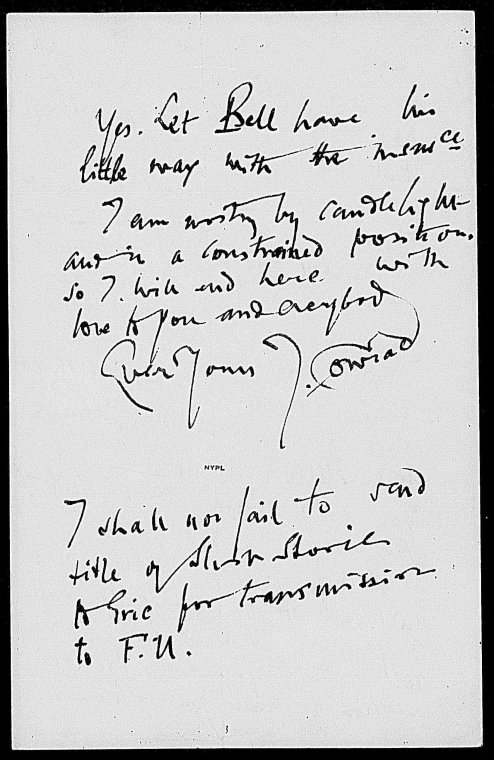 Yes. Let Bell have his
little way with the insnce
I am writing by candlelight
and in a constrained position.
so I will end here with
love to you and everybody
Ever Yours J. Conrad
NYPL
I shall not fail to send
title of Short Stories
to Eric for transmission
to F.U.